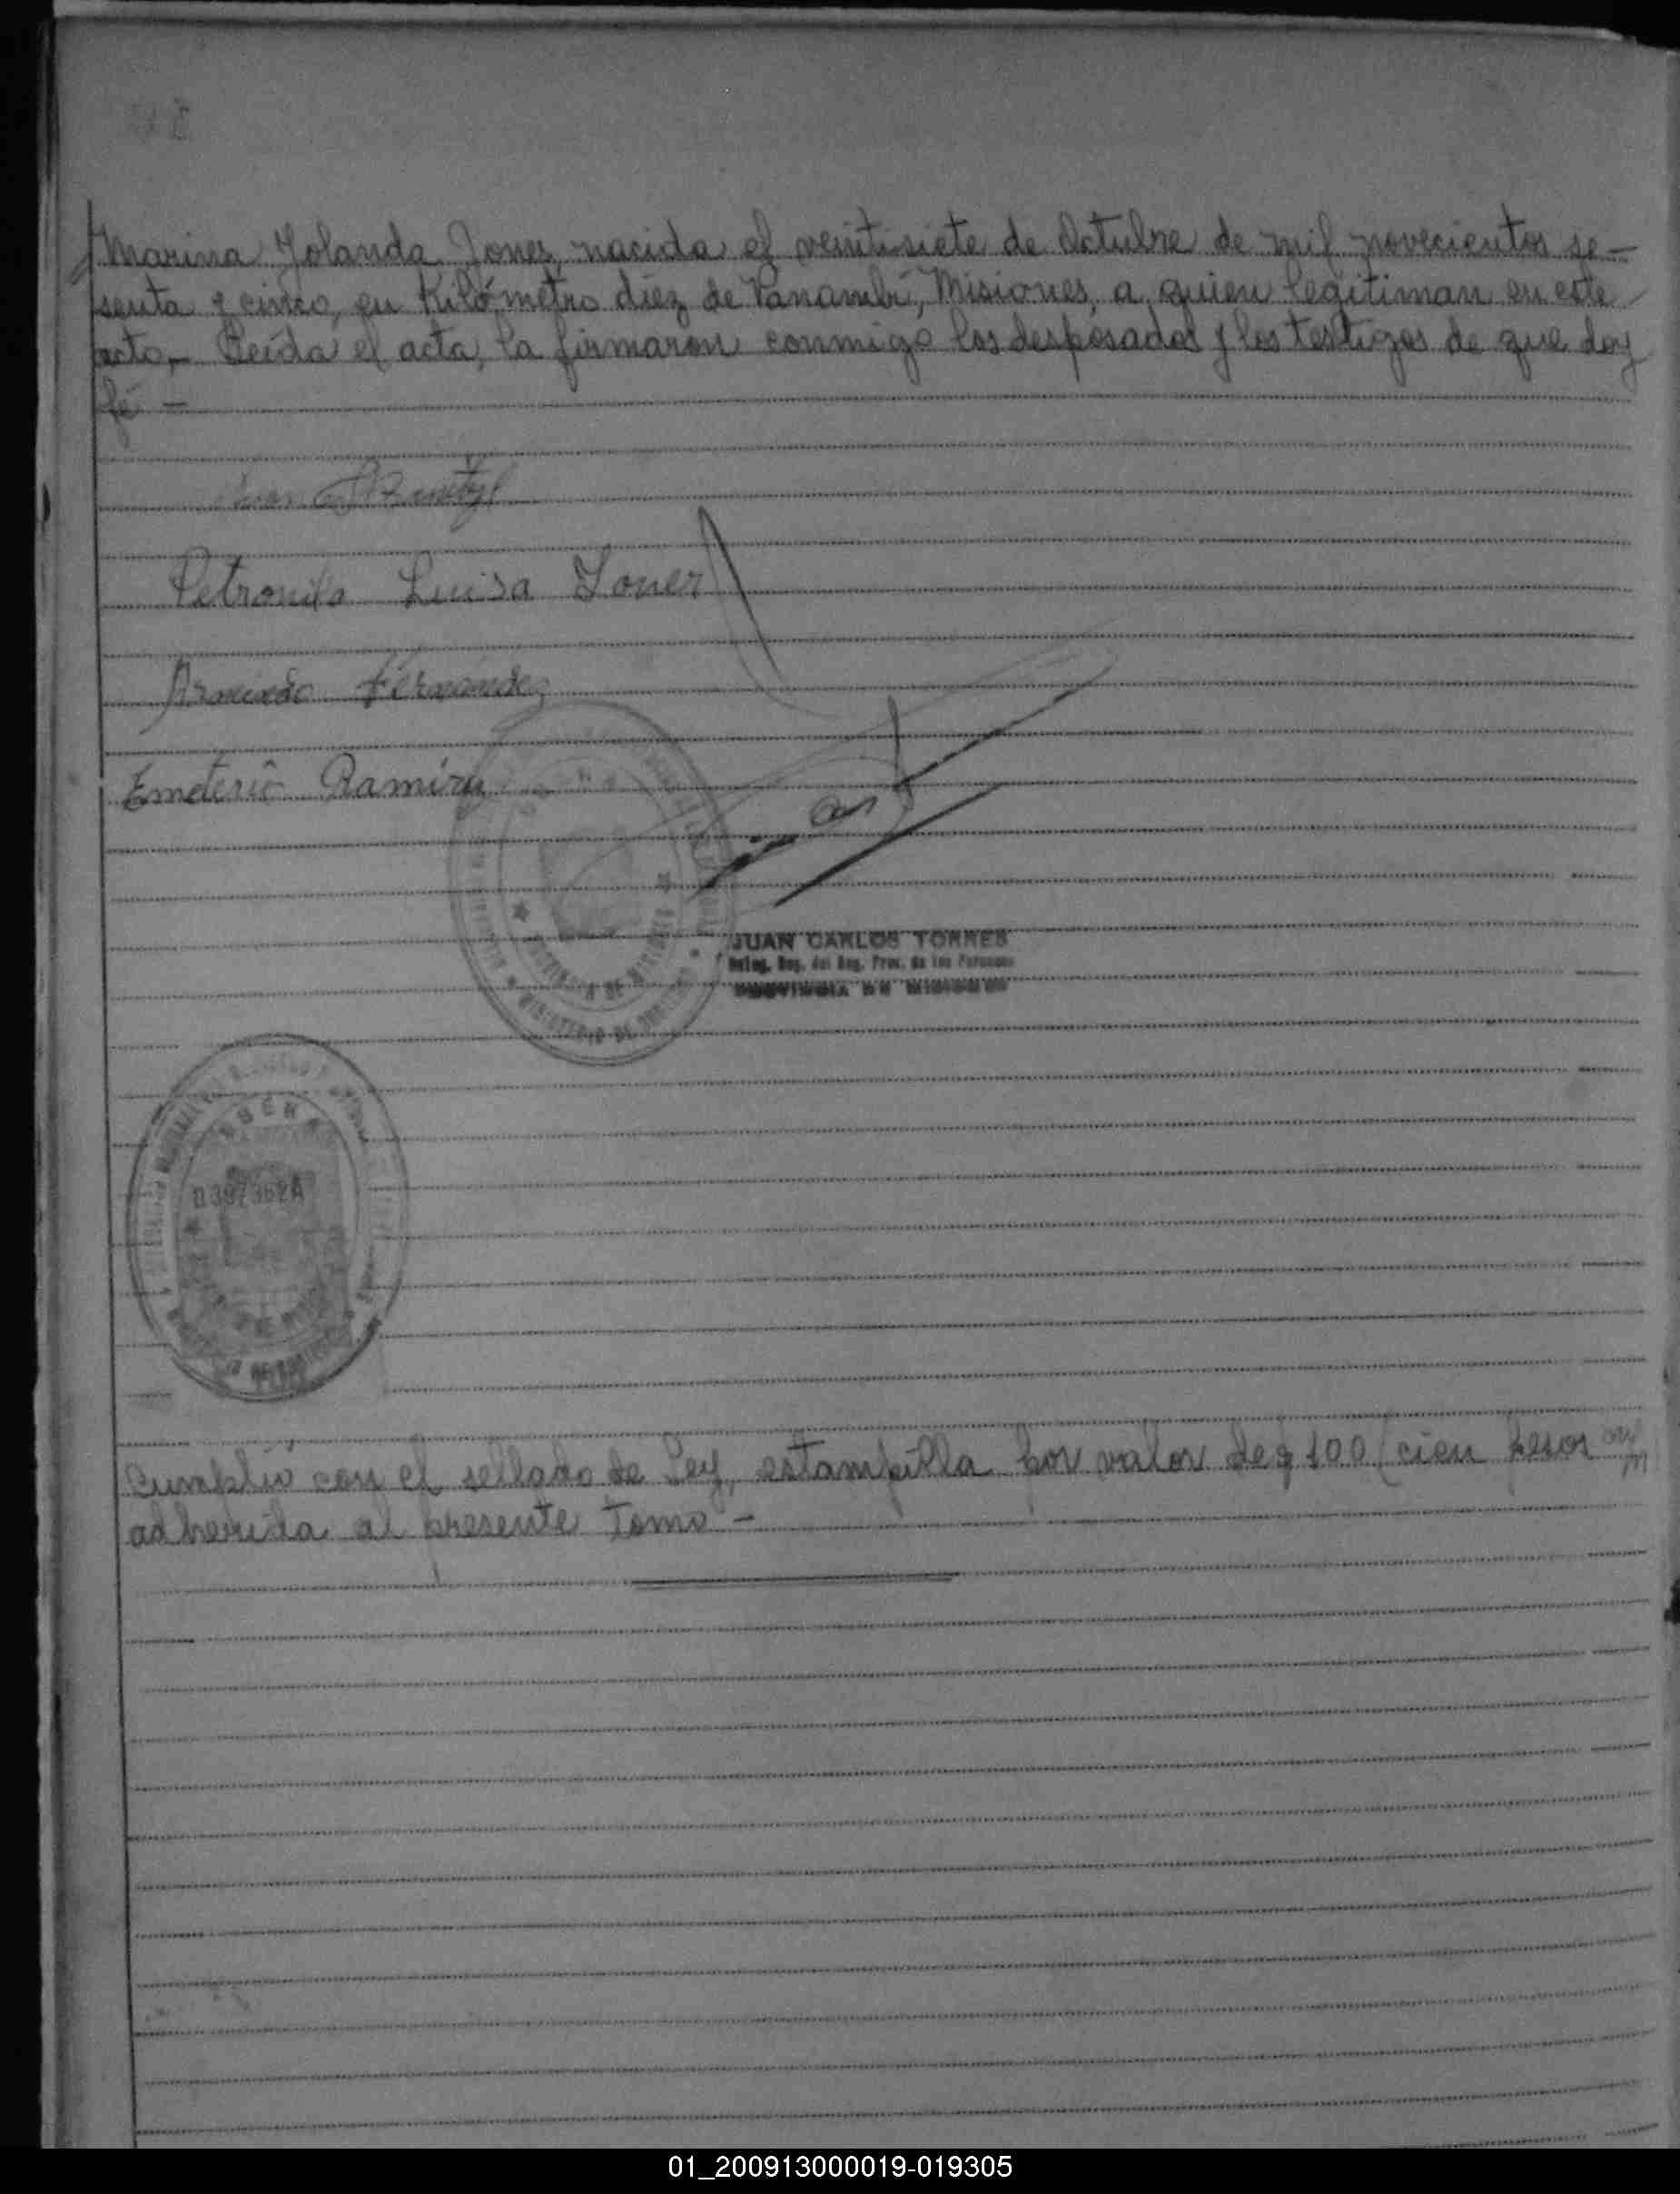 Marina Yolanda Joner, nacida el veintisiete de Octubre de mil novecientos se-
senta y cinco, en Kilómetro diez de Panambí, Misiones, a quien legitiman en este
acto.- Leída el acta, la firmaron conmigo los desposados y los testigos de que doy
fé -
Petronila Luisa Joner
Armindo Fernandez
Emeterio Ramirez
JUAN CARLOS TORRES
Deleg. del Reg. Prov. de las Personas
PROVINCIA DE MISIONES
MINISTERIO DE
0397362A
Cumplió con el sellado de Ley, estampilla por valor de $ 100 (cien pesos
adherida al presente tomo -
01_200913000019-019305